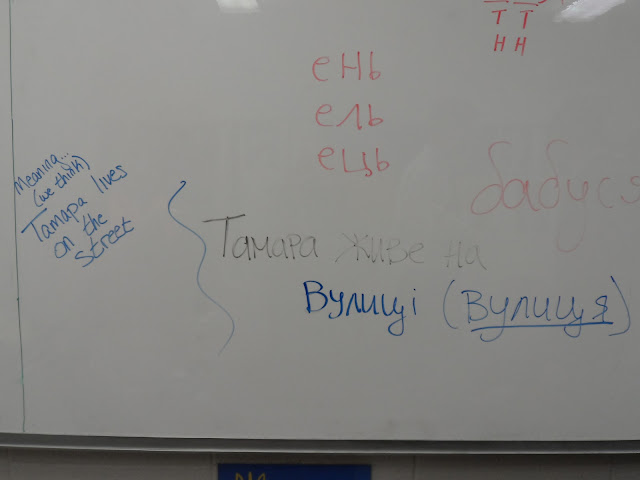 Т Т
Н Н
ень
ель
ець
бабуся
Meaning...
(we think)
Тамара lives
on the
street
Тамара живе на
Вулиці (Вулиця)